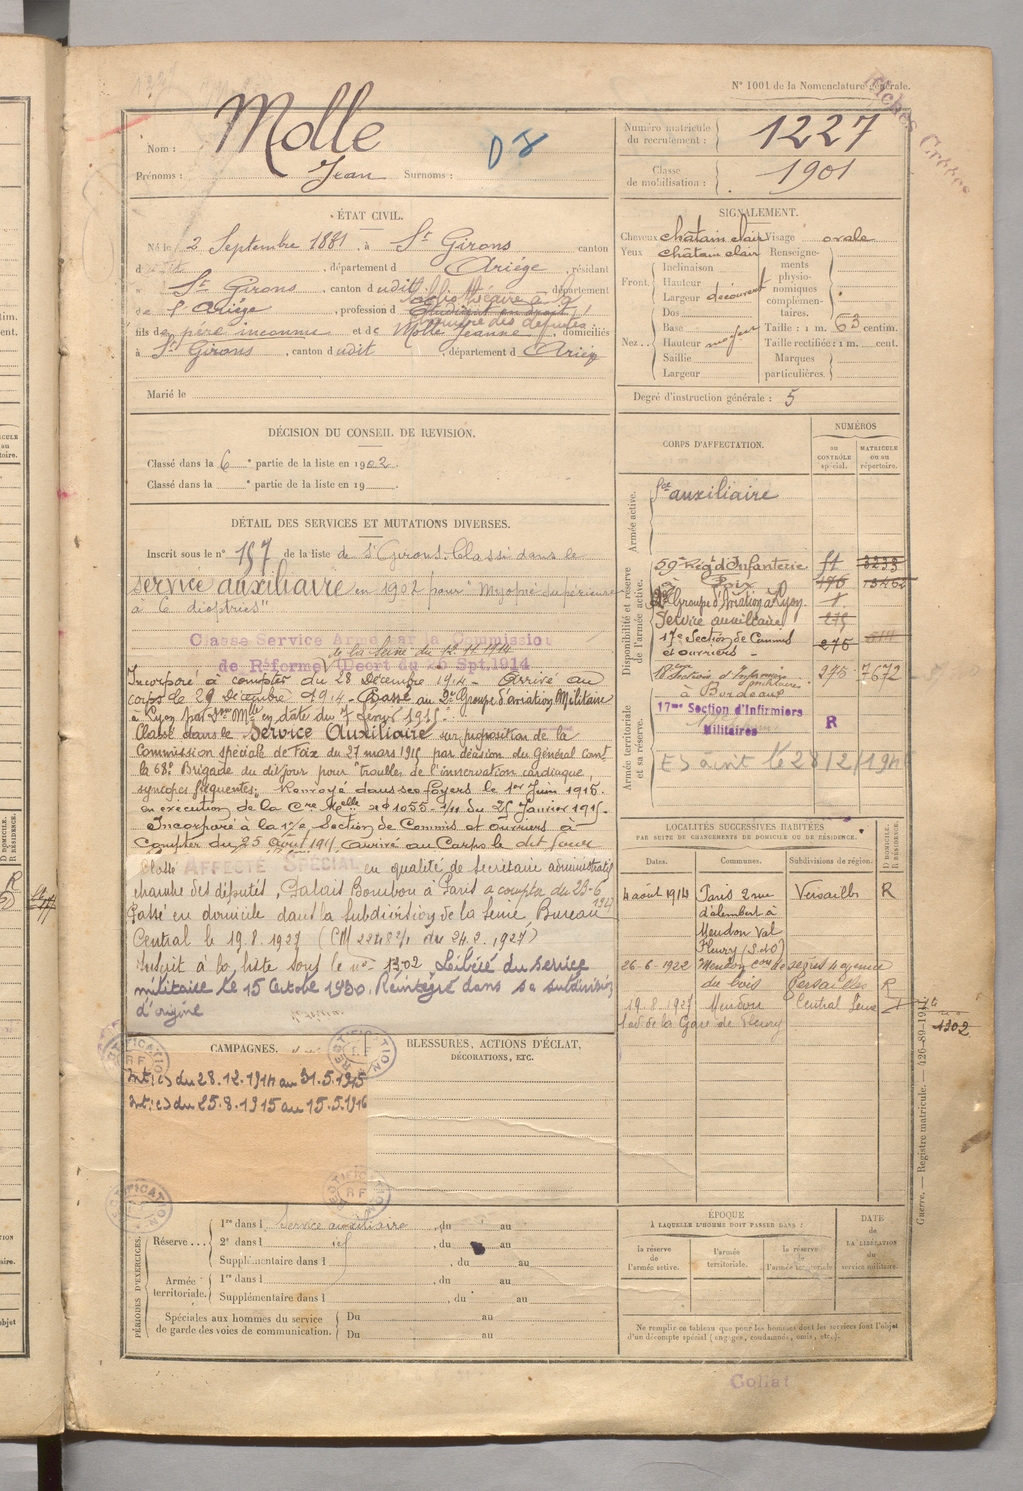 N° 1001 de la Nomenclature générale.
Fiches Créées
Nom : Molle
D 8
Prénoms : Jean Surnoms :
Numéro matricule du recrutement : 1227
Classe de mobilisation : 1901
ÉTAT CIVIL.
Né le 2 Septembre 1881, à St Girons canton
d dit, département d Ariége, résidant
à St Girons, canton d udit, département
de l'Ariége, profession d Etudiant en droit
bibliothécaire à la
chambre des députés
fils d e père inconnu et de Molle Jeanne, domiciliés
à St Girons, canton d udit, département d Ariége
Marié le
SIGNALEMENT.
Cheveux châtain clair Visage ovale
Yeux châtain clair
Front. Inclinaison
Hauteur
Largeur découvert
Nez. Dos
Base
Hauteur moyen
Saillie
Largeur
Renseignements physionomiques complémentaires.
Taille : 1 m. 63 centim.
Taille rectifiée : 1 m. cent.
Marques particulières.
Degré d'instruction générale : 5
DÉCISION DU CONSEIL DE REVISION.
Classé dans la 6 e partie de la liste en 1902.
Classé dans la e partie de la liste en 19
DÉTAIL DES SERVICES ET MUTATIONS DIVERSES.
Inscrit sous le n° 157 de la liste de St Girons. Classé dans le
service auxiliaire en 1902 pour "Myopie supérieure
à 6 dioptries"
Classé Service Armé par la Commission
de la Seine du 12.11.1914
de Réforme (Décret du 26 Spt. 1914
Incorporé à compter du 28 Décembre 1914 - Arrivé au
corps le 29 Décembre 1914 - Passé au 2e Groupe d'aviation Militaire
à Lyon par en date du 7 1915.
Classé dans le Service Auxiliaire sur proposition de la
Commission spéciale de Foix du 27 mars 1915 par décision du Général comt
la 68e Brigade du dit jour pour "troubles de l'innervation cardiaque,
syncopes fréquentes". Renvoyé dans ses foyers le 1er Juin 1915.
en exécution de la Cre Melle n° 1055 du 25 Janvier 1915.
Incorporé à la 17e Section de Commis et ouvriers à
compter du 25 Août 1915 arrivé au Corps le dit jour
Classé AFFECTÉ SPÉCIAL en qualité de Secrétaire administratif
chambre des députés, Palais Bourbon à Paris a compter du 23-6
1927
Passé en domicile dans la subdivision de la Seine, Bureau
Central le 19.8.1927 (CM 2248 2/1 du 24.2.1927)
Inscrit à la liste sous le no 1302. Libéré du service
militaire le 15 Octobre 1930. Réintégré dans sa subdivision
d'origine
CORPS D'AFFECTATION.
NUMÉROS
au CONTRÔLE spécial.
MATRICULE ou au répertoire.
Armée active.
Sce auxiliaire
Disponibilité et réserve de l'armée active.
59e Régt d'Infanterie
à Foix
2e Groupe d'Aviation à Lyon.
Service auxiliaire
17e Section de Commis
et ouvriers -
Section d'Infirmiers
militaires
à Bordeaux
275 7672
Armée territoriale et sa réserve.
17me Section d'Infirmiers
Militaires
R
LOCALITÉS SUCCESSIVES HABITÉES
PAR SUITE DE CHANGEMENTS DE DOMICILE OU DE RÉSIDENCE.
Dates. Communes. Subdivisions de région. D DOMICILE. R RÉSIDENCE.
4 août 1914 Paris 2 rue Versailles R
d'alembert à
Meudon Val
Fleury (S-&-O)
26-6-1922 Meudon
du bois Versailles R
19.8.1927 Meudon Central Seine
1 av. de la Gare de Fleury
1302
CAMPAGNES.
Int(c) du 28.12.1914 au 31.5.1915
Int(c) du 25.8.1915 au 15.5.1916
RECTIFICATION
R F
BLESSURES, ACTIONS D'ÉCLAT,
DÉCORATIONS, ETC.
PÉRIODES D'EXERCICES.
Réserve... 1re dans l Service auxiliaire, du au
2e dans l id, du au
Supplémentaire dans l, du au
Armée territoriale. 1re dans l, du au
Supplémentaire dans l, du au
Spéciales aux hommes du service de garde des voies de communication. Du au
Du au
ÉPOQUE
À LAQUELLE L'HOMME DOIT PASSER DANS :
la réserve de l'armée active.
l'armée territoriale.
la réserve de l'armée territoriale
DATE de LA LIBÉRATION du service militaire.
Ne remplir ce tableau que pour les hommes dont les services font l'objet
d'un décompte spécial (engagés, condamnés, omis, etc.).
Guerre. — Registre matricule. — 426-89-1911